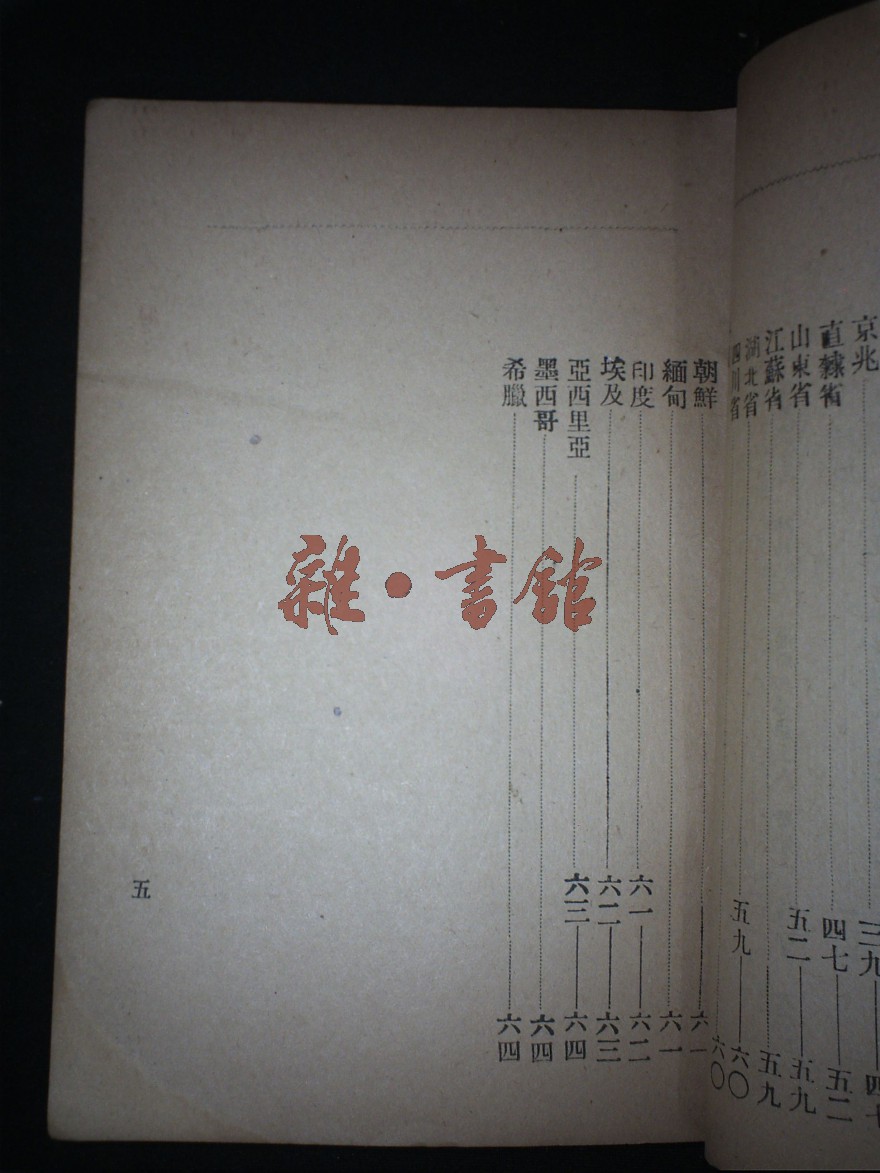 京兆 三九——四七
直隸省 四七——五二
山東省 五二——五九
江蘇省 五九
湖北省 五九——六〇
四川省 六〇
朝鮮 六一
緬甸 六一
印度 六一——六二
埃及 六二——六三
亞西里亞 六三——六四
墨西哥 六四
希臘 六四
五
雜·書館